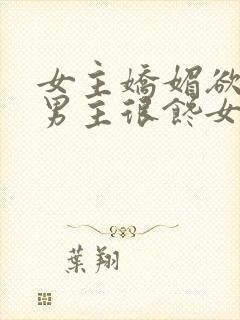 女主嬌媚欲
男主很饞女
葉翔